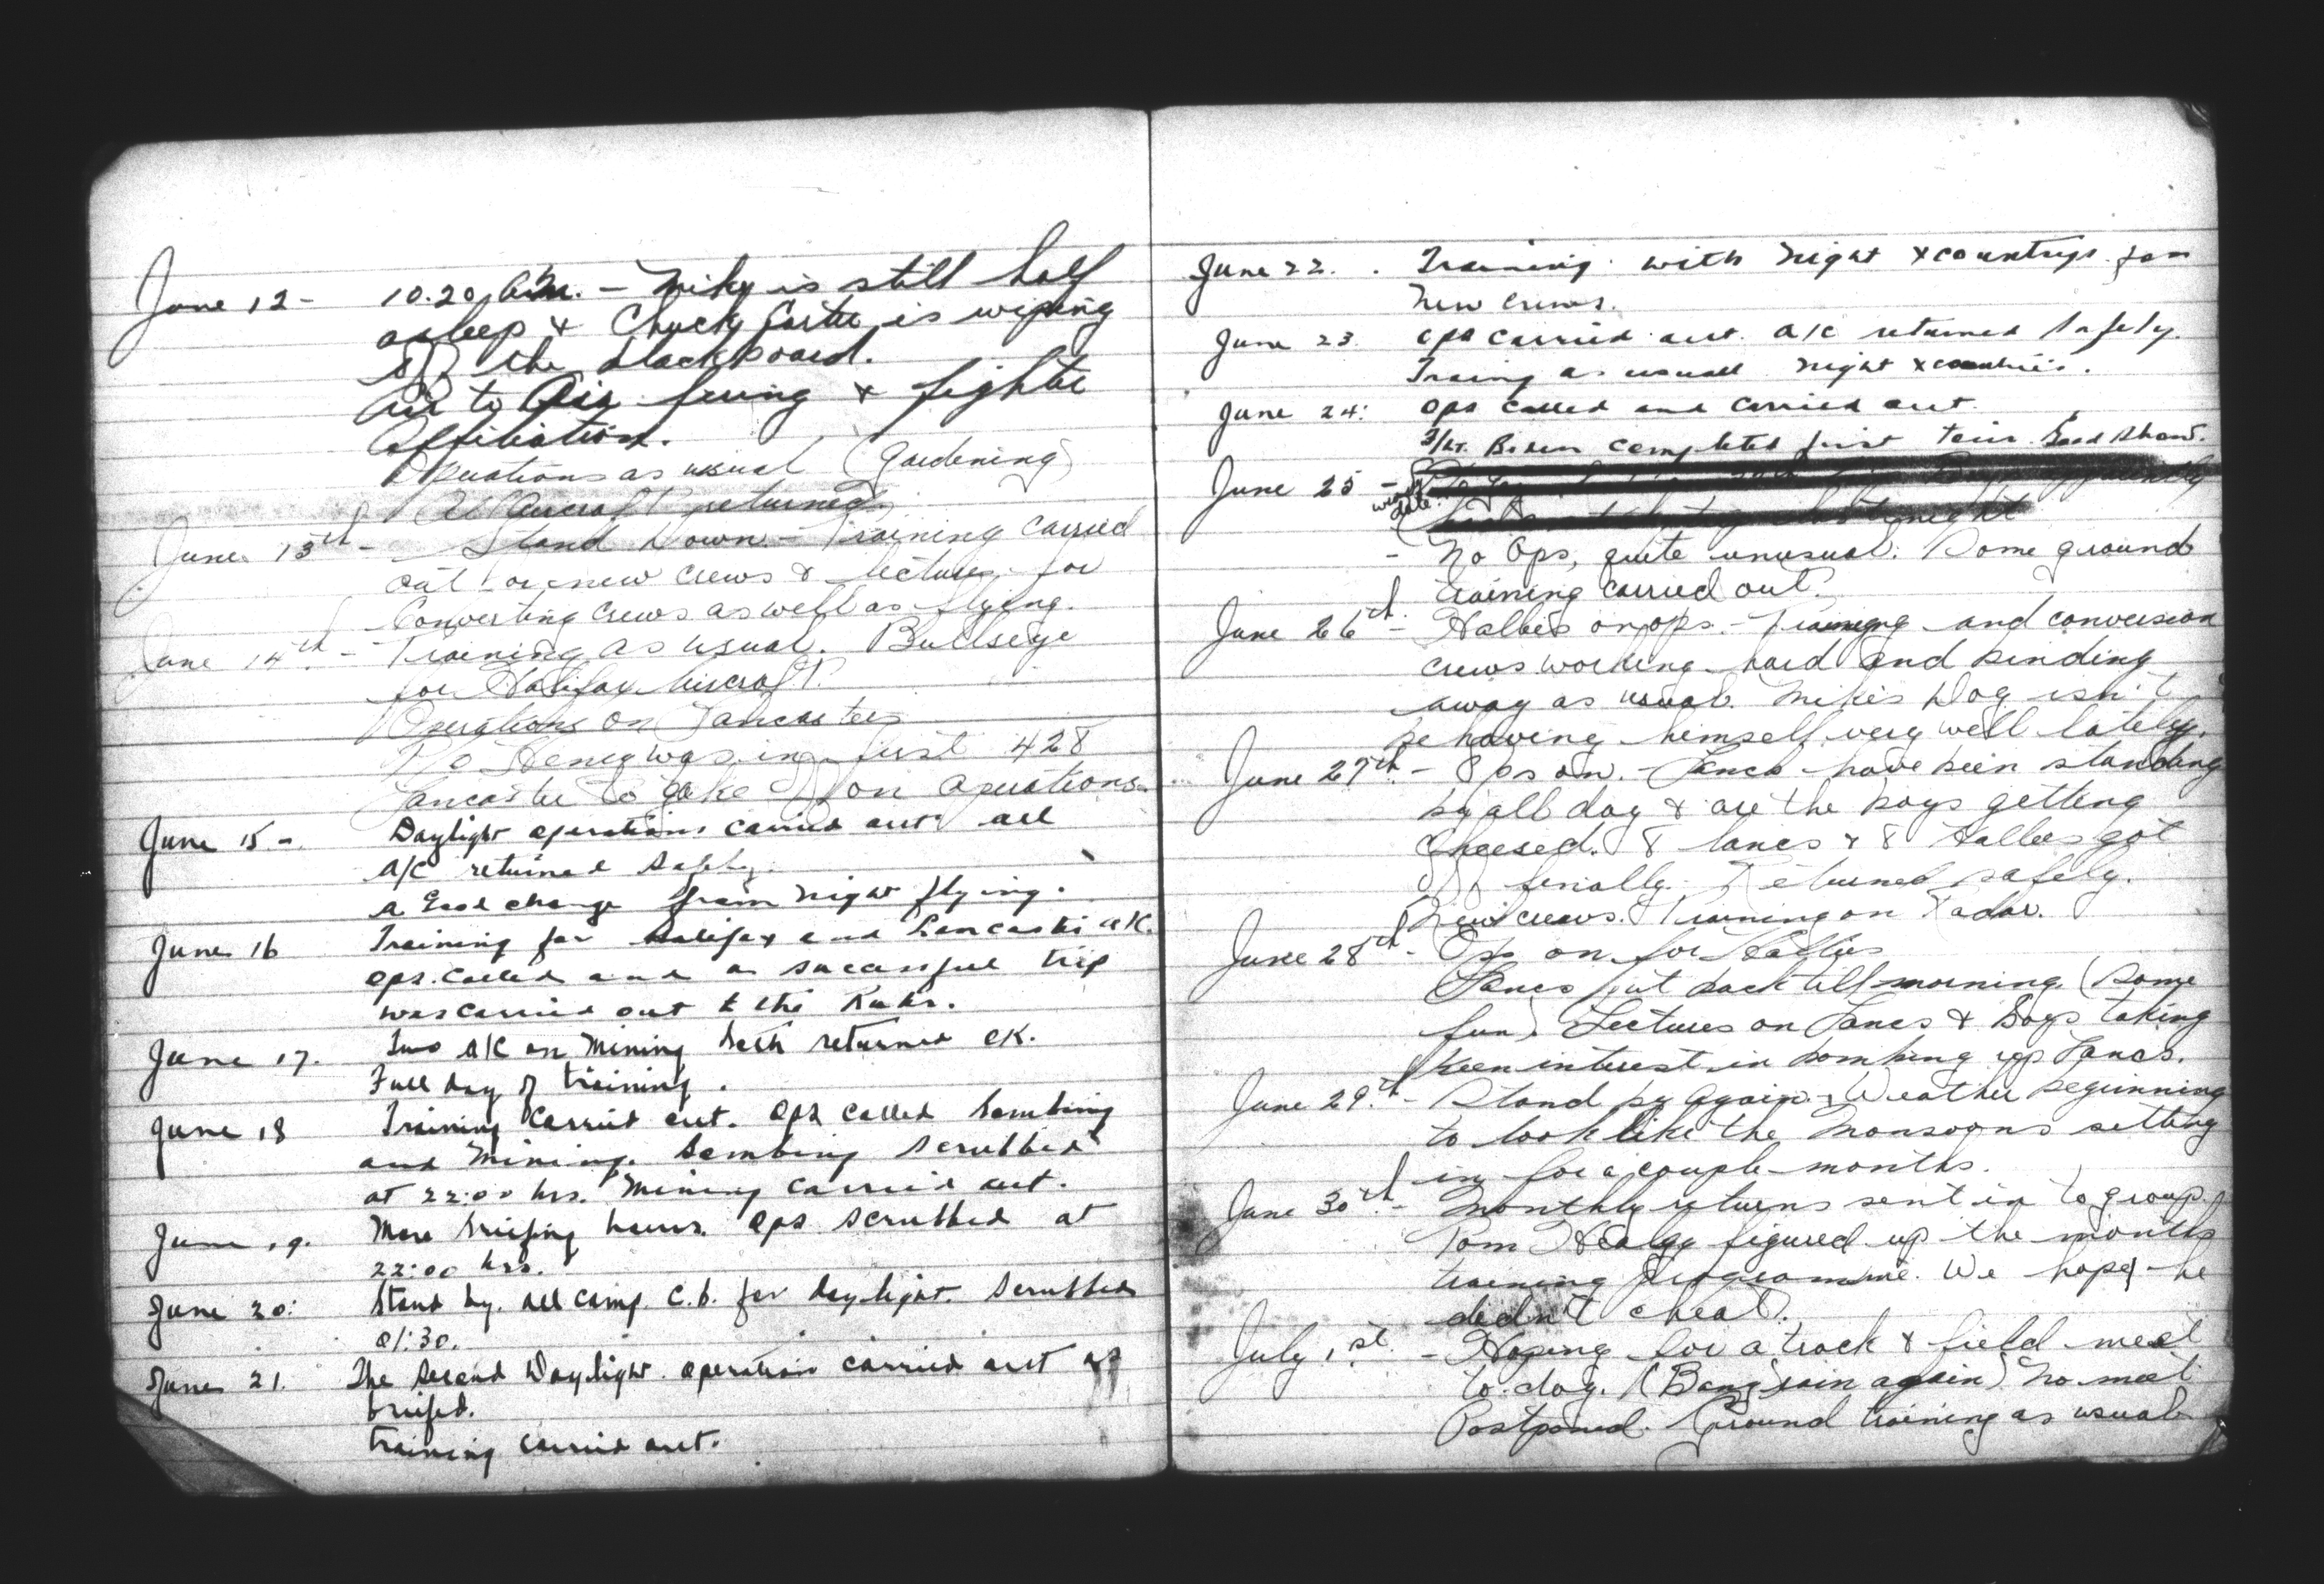 June 12 - 10.20 A.M. - Mike is still half
asleep & Chuck is wiping
off the blackboard.
Air to Air firing & fighter
Affiliation.
Operations as usual (Gardening)
All Aircraft returned.
June 13th - Stand Down - Training carried
out on new crews & lectures for
Converting crews as well as flying.
June 14th - Training as usual. Bullseye
for Halifax Aircraft.
Operations on Lancasters
was in first 428
Lancaster to take off on operations.
June 15 - Daylight operations carried out. all
A/C returned safely.
A good change from night flying.
June 16 Training for Halifax and Lancaster A/C.
Ops. called and a sucessful trip
was carried out to the Ruhr.
June 17. Two A/C on Mining both returned OK.
Full day of training.
June 18 Training carried out. Ops called bombing
and mining. Bombing scrubbed
at 22:00 hrs. Mining carried out.
June 19. More briefing hours. Ops scrubbed at
22:00 hrs.
June 20: Stand by. All camp C.B. for daylight. Scrubbed
01:30.
June 21. The second Daylight operation carried out as
briefed.
training carried out.
June 22. Training with night xcountrys for
new crews.
June 23. Ops carried out. A/C returned safely.
Traing as usuall night xcountries.
June 24: Ops called and carried out.
completed first tour. Good show.
June 25 - wrong
date.
- No Ops, quite unusual. Some ground
training carried out.
June 26th - Hallies on ops. - Training and conversion
crews working hard and binding
away as usual. Mike's Dog isn't
behaving himself very well lately.
June 27th. - Ops on. - Lancs have been standing
by all day & are the boys getting
cheesed. 8 lancs & 8 Hallies got
off finally. Returned safely.
New crews. Training on Radar.
June 28th - Ops on for Hallies
Lancs put back till morning. (Some
fun). Lectures on Lancs & Boys taking
keen interest in bombing up Lancs.
June 29th - Stand by again - Weather beginning
to look like the Monsoons setting
in for a couple months.
June 30th. - Monthly returns sent in to group.
Tom figured up the months
training programme. We hope he
didn't cheat.
July 1st. - Hoping for a track & field meet
to-day. (Bang rain again) No meet
Postponed. Ground training as usual